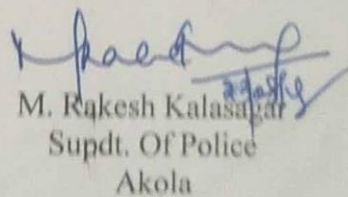 M. Rakesh Kalasagar
Supdt. Of Police
Akola